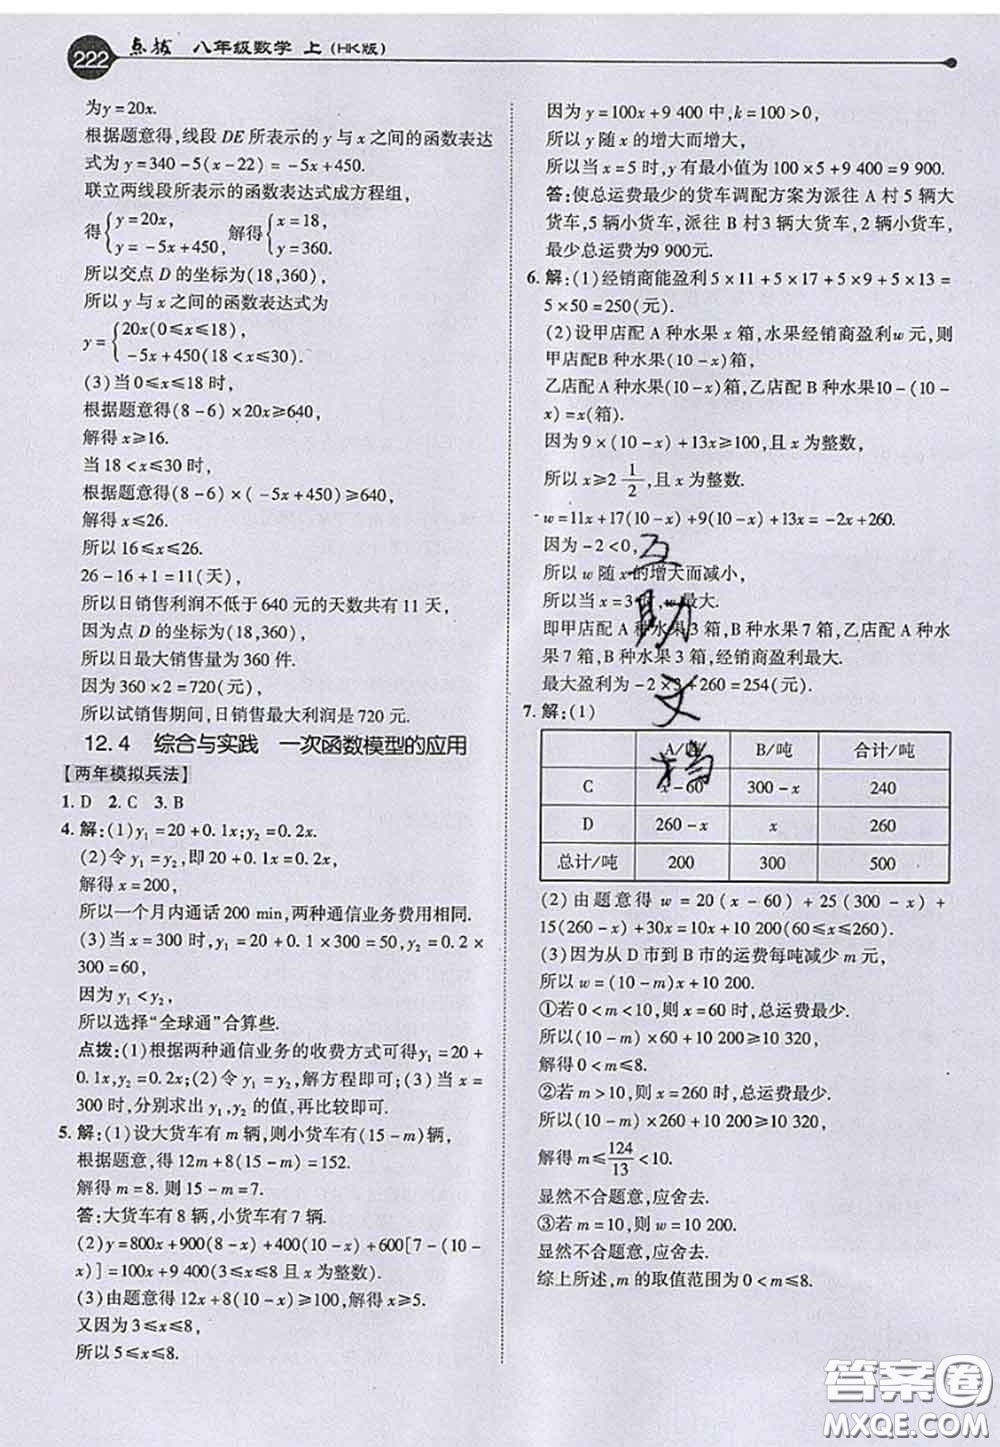 222 点拨 八年级数学 上(HK版)
为y=20x.
根据题意得,线段 DE 所表示的 y 与 x 之间的函数表达
式为 y=340-5(x-22)=-5x+450.
联立两线段所表示的函数表达式成方程组,
得{y=20x, y=-5x+450, 解得{x=18, y=360.
所以交点 D 的坐标为(18,360),
所以 y 与 x 之间的函数表达式为
y={20x(0≤x≤18), -5x+450(18<x≤30).
(3)当 0≤x≤18 时,
根据题意得(8-6)×20x≥640,
解得 x≥16.
当 18<x≤30 时,
根据题意得(8-6)×(-5x+450)≥640,
解得 x≤26.
所以 16≤x≤26.
26-16+1=11(天),
所以日销售利润不低于 640 元的天数共有 11 天,
因为点 D 的坐标为(18,360),
所以日最大销售量为 360 件.
因为 360×2=720(元),
所以试销售期间,日销售最大利润是 720 元.
12.4 综合与实践 一次函数模型的应用
【两年模拟兵法】
1. D 2. C 3. B
4. 解:(1)y₁=20+0.1x;y₂=0.2x.
(2)令 y₁=y₂,即 20+0.1x=0.2x,
解得 x=200,
所以一个月内通话 200 min,两种通信业务费用相同.
(3)当 x=300 时,y₁=20+0.1×300=50,y₂=0.2×
300=60,
因为 y₁<y₂,
所以选择“全球通”合算些.
点拨:(1)根据两种通信业务的收费方式可得y₁=20+
0.1x,y₂=0.2x;(2)令 y₁=y₂,解方程即可;(3)当 x=
300 时,分别求出 y₁,y₂ 的值,再比较即可.
5. 解:(1)设大货车有 m 辆,则小货车有(15-m)辆,
根据题意,得 12m+8(15-m)=152.
解得 m=8. 则 15-m=7.
答:大货车有 8 辆,小货车有 7 辆.
(2)y=800x+900(8-x)+400(10-x)+600[7-(10-
x)]=100x+9 400(3≤x≤8 且 x 为整数).
(3)由题意得 12x+8(10-x)≥100,解得 x≥5.
又因为 3≤x≤8,
所以 5≤x≤8.
因为 y=100x+9 400 中,k=100>0,
所以 y 随 x 的增大而增大,
所以当 x=5 时,y 有最小值为 100×5+9 400=9 900.
答:使总运费最少的货车调配方案为派往 A 村 5 辆大
货车,5 辆小货车,派往 B 村 3 辆大货车,2 辆小货车,
最少总运费为 9 900元.
6. 解:(1)经销商能盈利 5×11+5×17+5×9+5×13=
5×50=250(元).
(2)设甲店配 A 种水果 x 箱,水果经销商盈利w元,则
甲店配B 种水果(10-x)箱,
乙店配 A 种水果(10-x)箱,乙店配 B 种水果 10-(10-
x)=x(箱).
因为 9×(10-x)+13x≥100,且 x 为整数,
所以 x≥2 1/2,且 x 为整数.
w=11x+17(10-x)+9(10-x)+13x=-2x+260.
因为 -2<0,
所以 w 随 x 的增大而减小,
所以当 x=3 时,w 最大.
即甲店配 A 种水果 3 箱,B 种水果 7 箱,乙店配 A 种水
果 7 箱,B 种水果 3 箱,经销商盈利最大.
最大盈利为 -2×3+260=254(元).
7. 解:(1)
A/吨 B/吨 合计/吨
C x-60 300-x 240
D 260-x x 260
总计/吨 200 300 500
(2)由题意得 w=20(x-60)+25(300-x)+
15(260-x)+30x=10x+10 200(60≤x≤260).
(3)因为从 D 市到 B 市的运费每吨减少 m 元,
所以 w=(10-m)x+10 200.
①若 0<m<10,则 x=60 时,总运费最少.
所以(10-m)×60+10 200≥10 320,
解得 0<m≤8.
②若 m>10,则 x=260 时,总运费最少.
所以(10-m)×260+10 200≥10 320,
解得 m≤124/13<10.
显然不合题意,应舍去.
③若 m=10,则 w=10 200.
显然不合题意,应舍去.
综上所述,m 的取值范围为 0<m≤8.
互助文档
答案圈
MXQE.COM